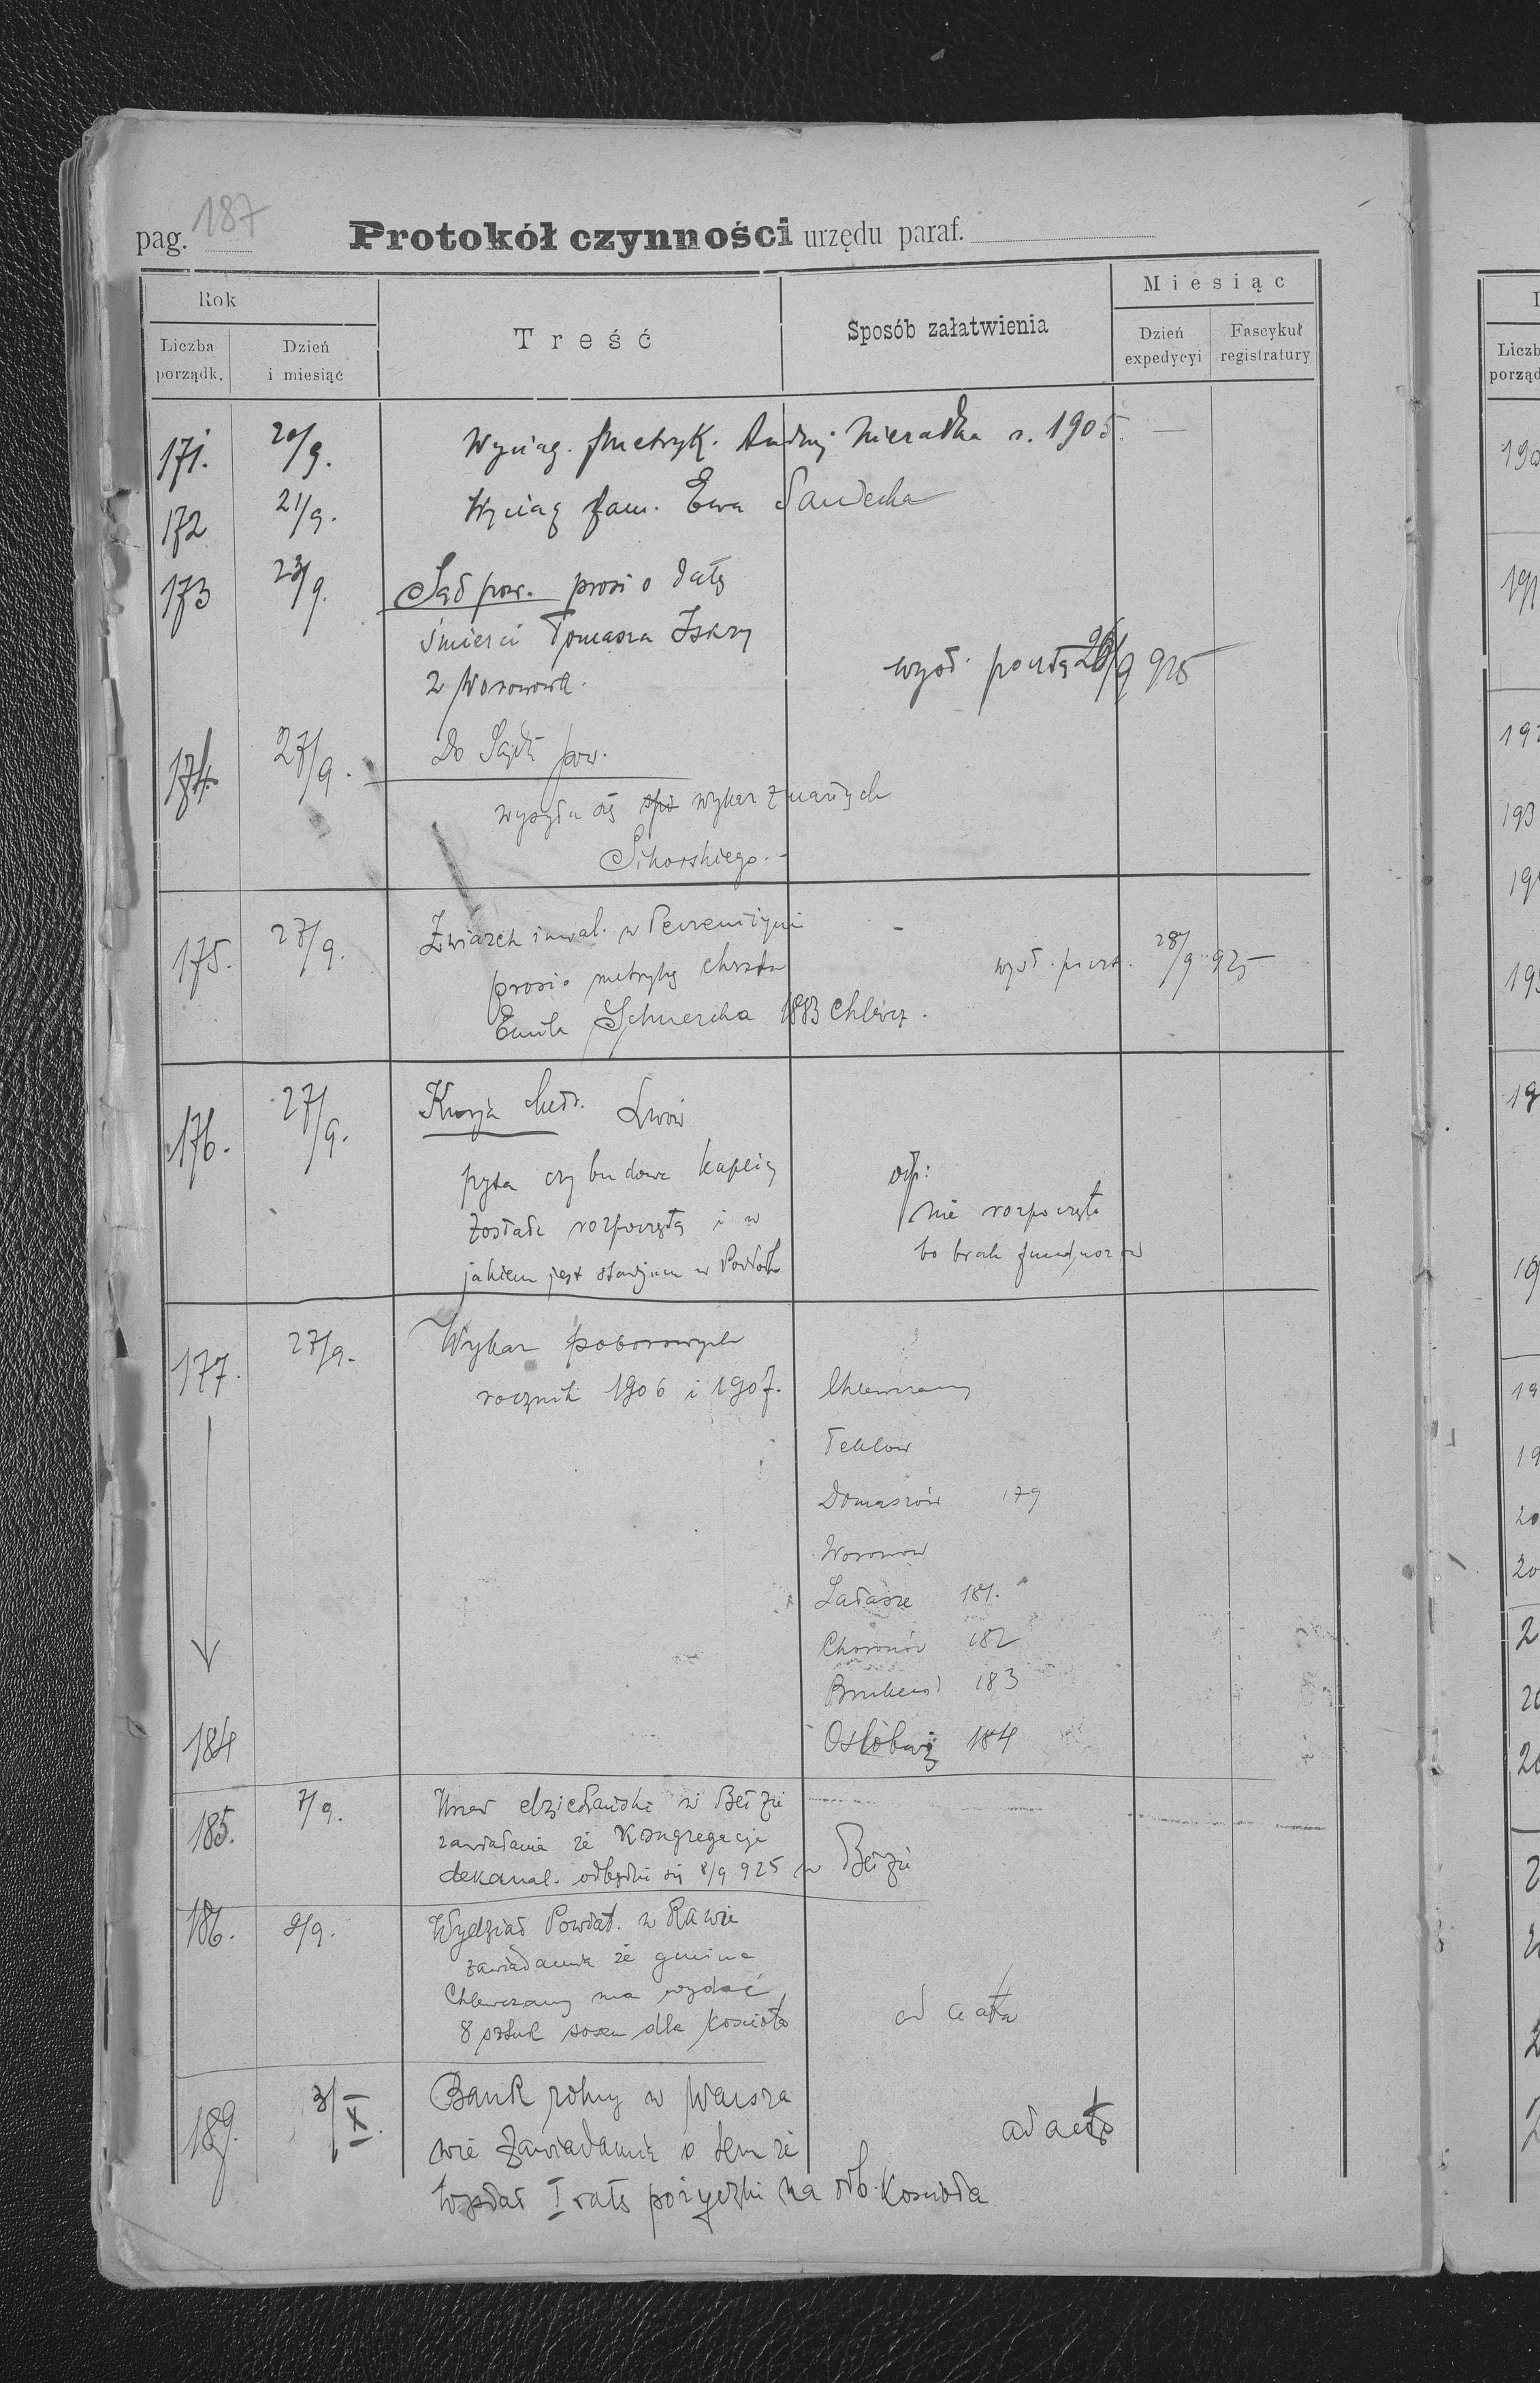 pag. 187 Protokół czynności urzędu paraf.
Rok Treść Sposób załatwienia Miesiąc
Liczba porządk. Dzień i miesiąc Dzień expedycyi Fascykuł registratury
171. 20/9. Wyciąg. metryk. Andrzej r. 1905. —
172 21/9. Wyciąg fam. Ewa Sawecka
173 23/9. Sąd pow. prosi o datę
śmierci Tomasza Iskry
z Woronowa. wysł. pocztą 26/9 925
174. 27/9. Do Sądu pow.
wysyła się wykaz zmarłych
Sikorskiego. -
175. 27/9. Związek inwal. w
prosi o metrykę chrztu wysł. poczt. 28/9 925
Emila 1883 Chlewcz.
176. 27/9. Kurja Metr. Lwów
pyta czy budowa kaplicy odp:
została rozpoczętą i w nie rozpoczęto
jakiem jest stadjum w bo brak funduszów
177. 27/9. Wykaz poborowych
rocznik 1906 i 1907. Chlewczany
Tehlow
Domaszów 179
Woronow
Sałasze 181.
Choronów 182
183
184 184
185. 7/9. Urząd dziekański w Bełzie
zawiadamia że Kongregacja
dekanal. odbędzie się 8/9 925 w Bełzie
186. 9/9. Wydział Powiat. w Rawie
zawiadamia że gmina
Chlewczany ma wydać
8 sztuk sosen dla kościoła ad acta
189. 3/X. Bank rolny w Warsza
wie zawiadamia o tem że ad acta
wysłał I ratę pożyczki na odb. Kościoła
190
191
193
20